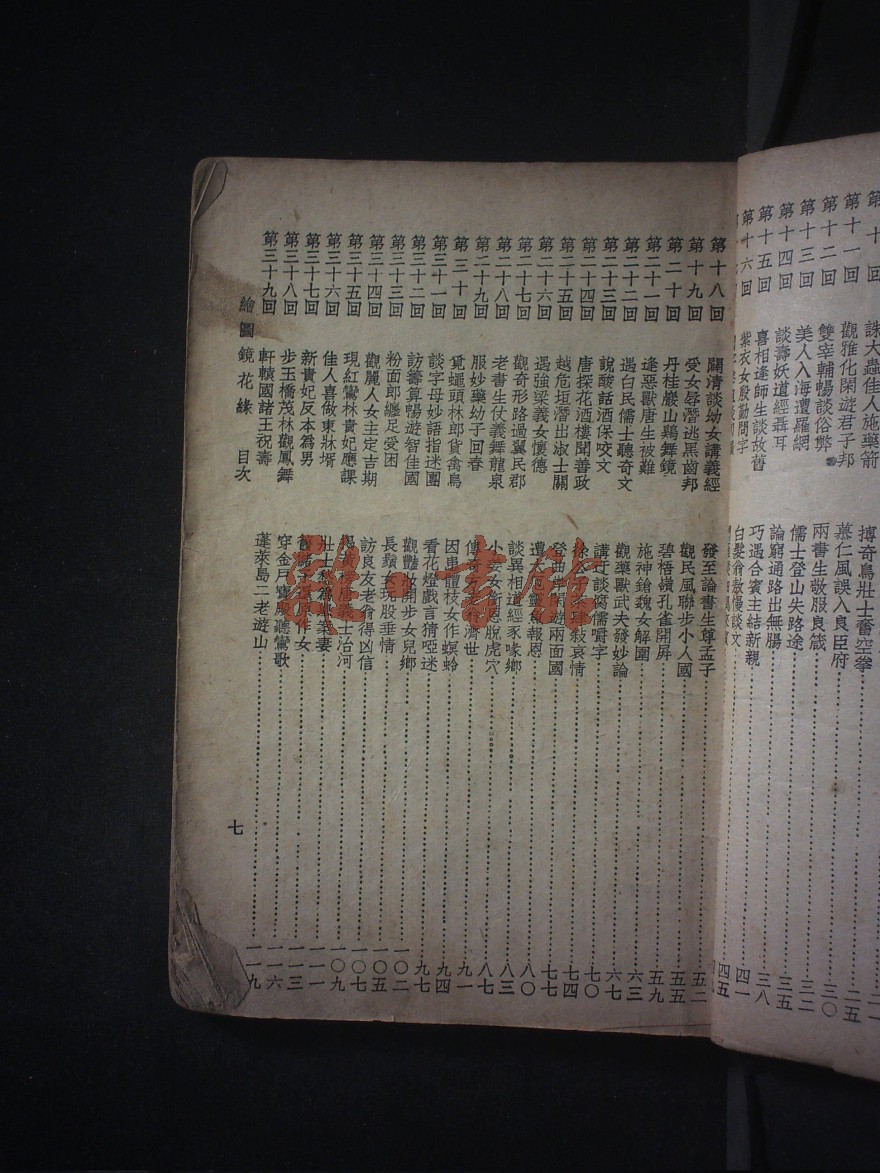 第十回 誅大蟲佳人施藥箭 搏奇鳥壯士奮空拳 二五
第十一回 觀雅化閑遊君子邦 慕仁風誤入良臣府 三〇
第十二回 雙宰輔暢談俗弊 兩書生敬服良箴 三二
第十三回 美人入海遭羅網 儒士登山失路途 三五
第十四回 談壽妖道經聶耳 論窮通路出無腸 三八
第十五回 喜相逢師生談故舊 巧遇合賓主結新親 四一
第十六回 紫衣女殷勤問字 白髮翁傲慢談文 四五
第十八回 闢清談幼女講義經 發至論書生尊孟子 五二
第十九回 受女辱潛逃黑齒邦 觀民風聯步小人國 五五
第二十回 丹桂巖山鷄舞鏡 碧梧嶺孔雀開屏 五九
第二十一回 逢惡獸唐生被難 施神鎗魏女解圍 六三
第二十二回 遇白民儒士聽奇文 觀藥獸武夫發妙論 六七
第二十三回 說酸話酒保咬文 講迂談腐儒嚼字 七〇
第二十四回 唐探花酒樓聞善政 徐公子茶肆敍衷情 七四
第二十五回 越危垣潛出淑士關 登曲岸閑遊兩面國 七七
第二十六回 遇強梁義女懷德 遭大厄靈魚報恩 八〇
第二十七回 觀奇形路過翼民郡 談異相道經豕喙鄉 八三
第二十八回 老書生仗義舞龍泉 小姜女銜恩脫虎穴 八七
第二十九回 服妙藥幼子回春 傳奇方老翁濟世 九一
第三十回 覓蠅頭林郎貨禽鳥 因串體枝女作螟蛉 九四
第三十一回 談字母妙語指迷團 看花燈戲言猜啞迷 九七
第三十二回 訪籌算暢遊智佳國 觀艷妝閑步女兒鄉 一〇二
第三十三回 粉面郎纏足受困 長鬚女玩股垂情 一〇五
第三十四回 觀麗人女主定吉期 訪良友老翁得凶信 一〇七
第三十五回 現紅鸞林貴妃應課 揭黃榜唐義士治河 一〇九
第三十六回 佳人喜做東牀壻 壯士愁爲舉案妻 一一一
第三十七回 新貴妃反本爲男 舊儲子還原作女 一一三
第三十八回 步玉橋茂林觀鳳舞 穿金戶寶殿聽鸞歌 一一六
第三十九回 軒轅國諸王祝壽 蓬萊島二老遊山 一一九
繪圖鏡花緣 目次 七
雜·書館